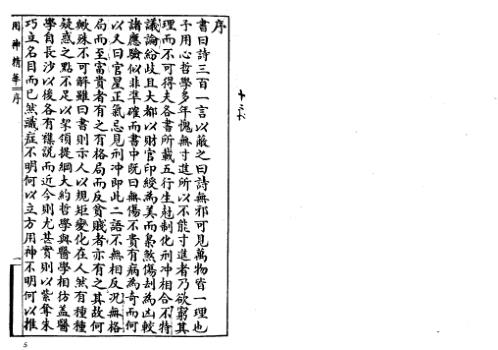 序
書曰詩三百一言以蔽之曰詩無邪可見萬物皆一理也
予用心哲學多年愧無寸進所以不能寸進者乃欲窮其
理而不可得夫各書所載五行生尅制化刑冲相合不待
議論紛歧且大都以財官印綬為美而梟煞傷刦為凶較
諸應驗似非準確而書中既曰無傷不貴有病為奇而何
以又曰官星正氣忌見刑冲即此二語不無相反况無格
局而至富貴者有之有格局而反貧賤者亦有之其故何
歟殊不可解雖曰書則示人以規矩變化在人然有種種
疑惑之點不足以挈領提綱大約哲學與醫學相彷蓋醫
學自長沙以後各有粿説而近今則尤甚實則以紫奪朱
巧立名目而已然識症不明何以立方用神不明何以推
用神精華 序
一
5